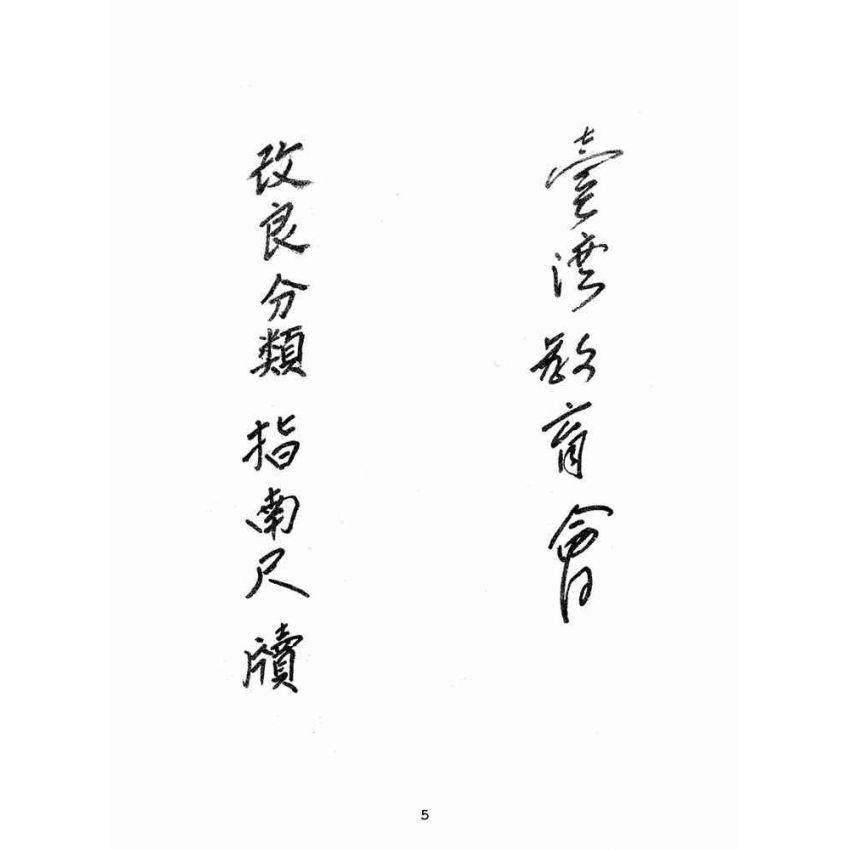 臺灣教育會
改良分類 指南尺牘
5